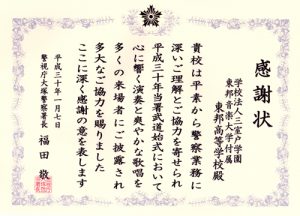 感謝状
学校法人三室戸学園
東邦音楽大学付属
東邦高等学校殿
貴校は平素から警察業務に
深いご理解とご協力を寄せられ
平成三十年当署武道始式において
心に響く演奏と爽やかな歌唱を
多くの来場者にご披露され
多大なご協力を賜りました
ここに深く感謝の意を表します
平成三十年一月七日
警視庁大塚警察署長
福田 敬